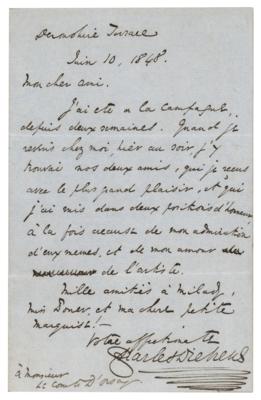 Devonshire Terrace
Juin 10, 1848.
Mon cher ami.
J'ai été à la campagne,
depuis deux semaines. Quand je
revins chez moi, hier au soir, j'y
trouvai nos deux amis, que je reçus
avec le plus grand plaisir, et que
j'ai mis dans deux positions d'honneur
à la fois de mon admiration
d'eux mêmes, et de mon amour
de l'artiste.
Mille amitiés à Milady,
Miss Power, et ma chere petite
Marquise!—
Votre affectionné
Charles Dickens
à Monsieur
Le Comte D'Orsay